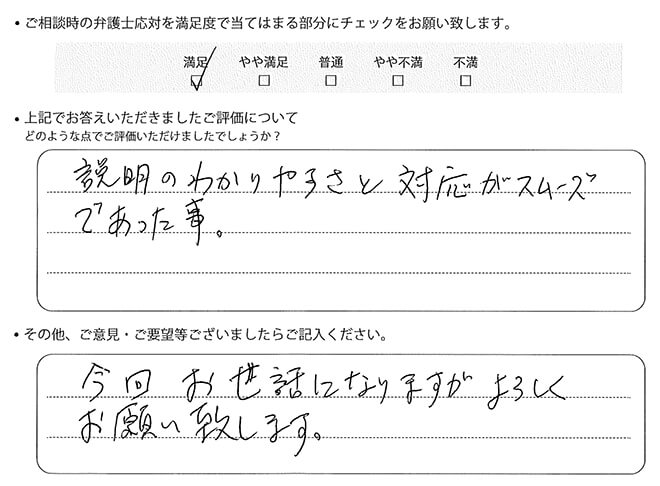 ・ご相談時の弁護士応対を満足度で当てはまる部分にチェックをお願い致します。
満足 やや満足 普通 やや不満 不満
☑ □ □ □ □
・上記でお答えいただきましたご評価について
どのような点でご評価いただけましたでしょうか？
説明のわかりやすさと対応がスムーズ
であった事。
・その他、ご意見・ご要望等ございましたらご記入ください。
今回お世話になりますがよろしく
お願い致します。